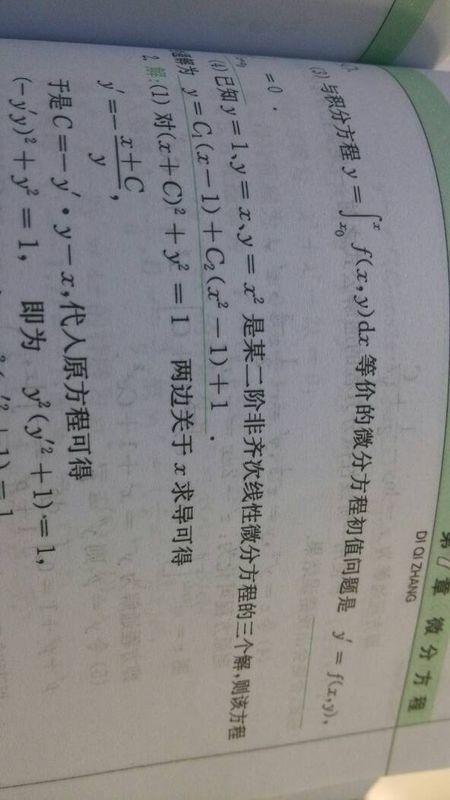 第七章 微分方程
DI QI ZHANG
(3) 与积分方程 y = ∫_{x₀}^{x} f(x,y)dx 等价的微分方程初值问题是 y′ = f(x,y),
= 0 .
(4) 已知 y = 1、y = x、y = x² 是某二阶非齐次线性微分方程的三个解,则该方程
解为 y = C₁(x − 1) + C₂(x² − 1) + 1 .
2. 解:(1) 对(x + C)² + y² = 1 两边关于 x 求导可得
y′ = − (x + C)/y,
于是 C = − y′ · y − x,代入原方程可得
(− y′y)² + y² = 1, 即为 y²(y′² + 1) = 1,